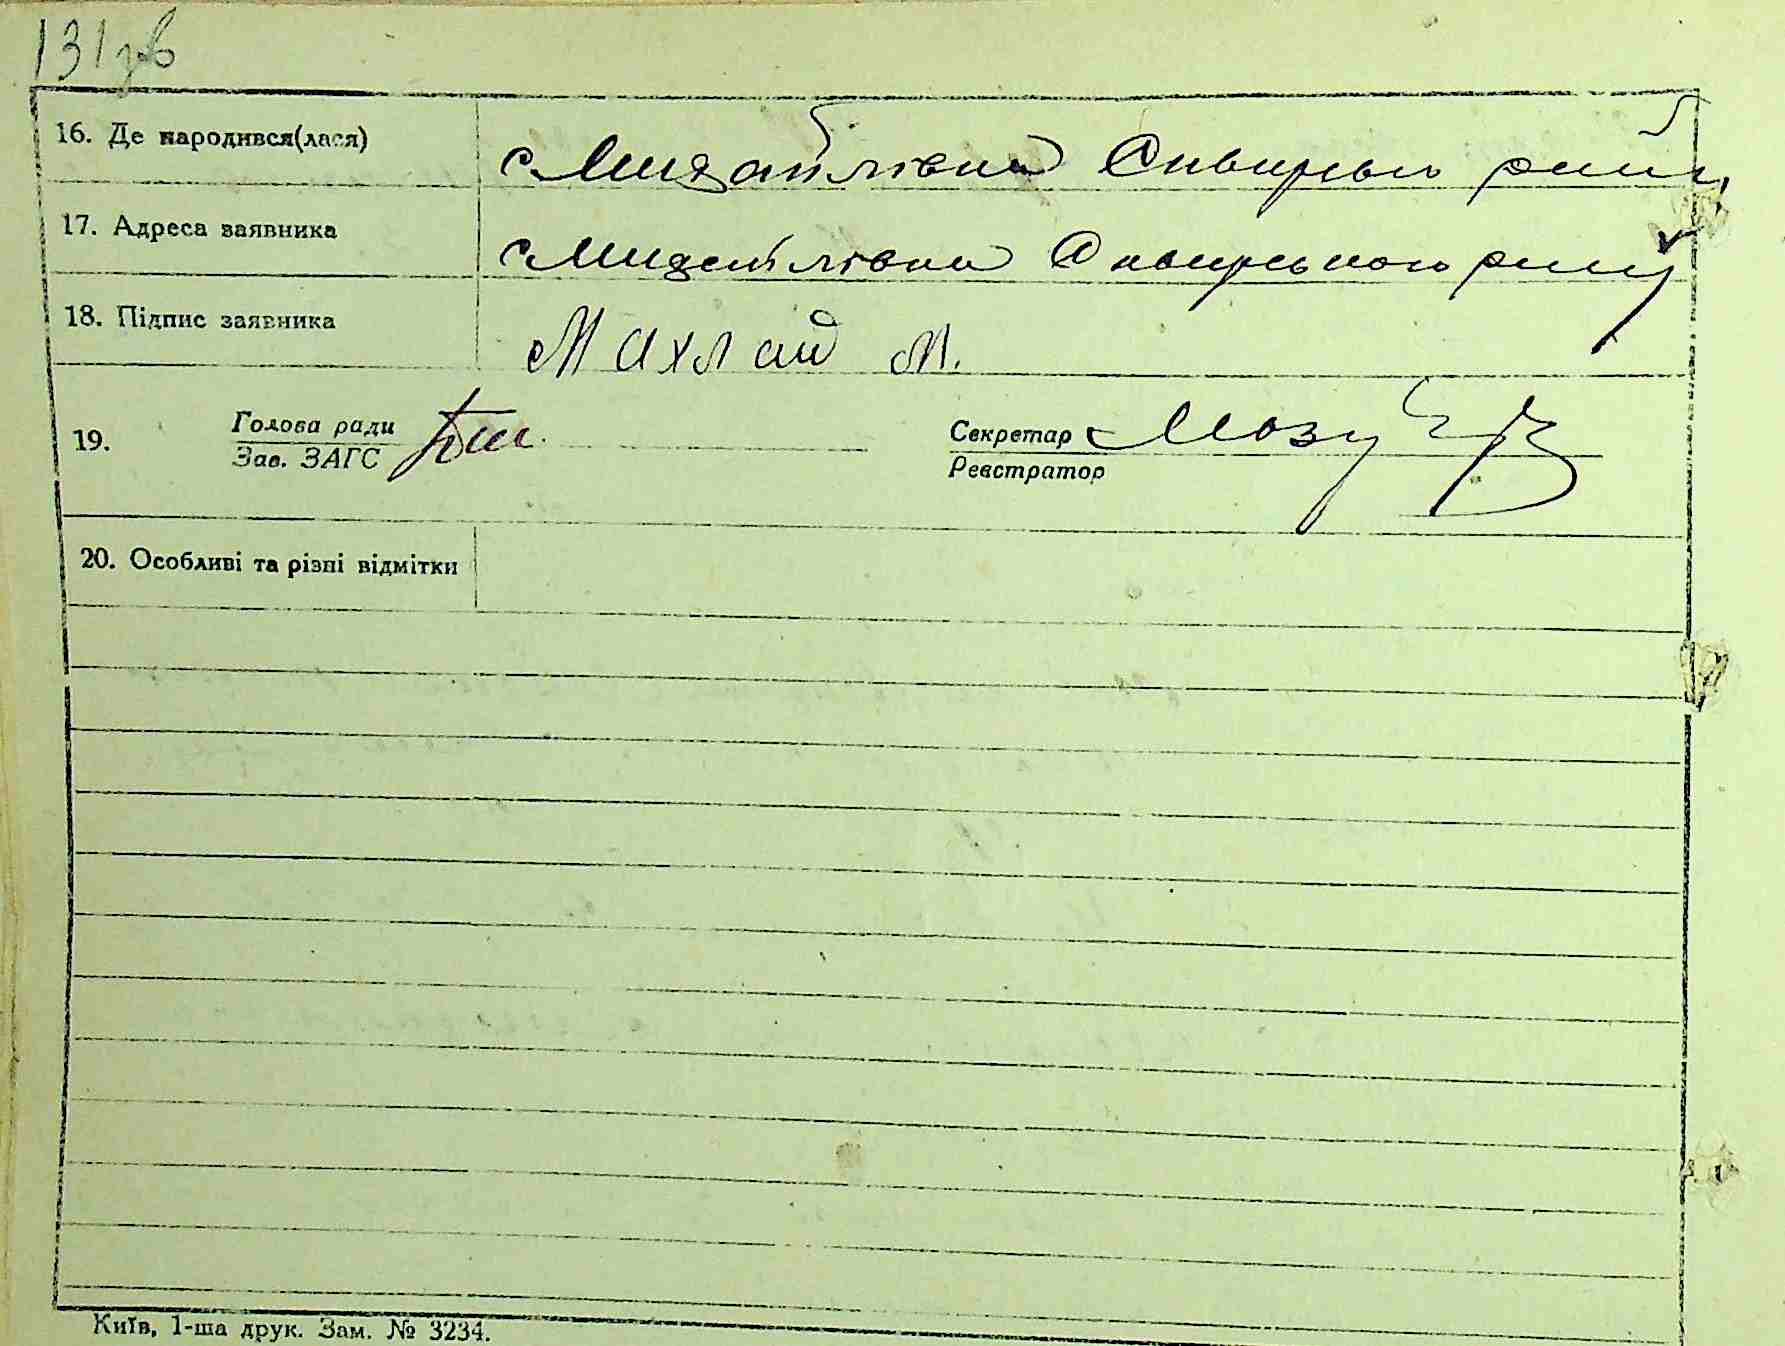 131 зв
16. Де народився(лася) с Михайлівка Сквирськ район
17. Адреса заявника с Михайлівка Сквирського району
18. Підпис заявника Махлай М.
19. Голова ради
Зав. ЗАГС
Секретар Мазур
Реєстратор
20. Особливі та різні відмітки
Київ, 1-ша друк. Зам. № 3234.